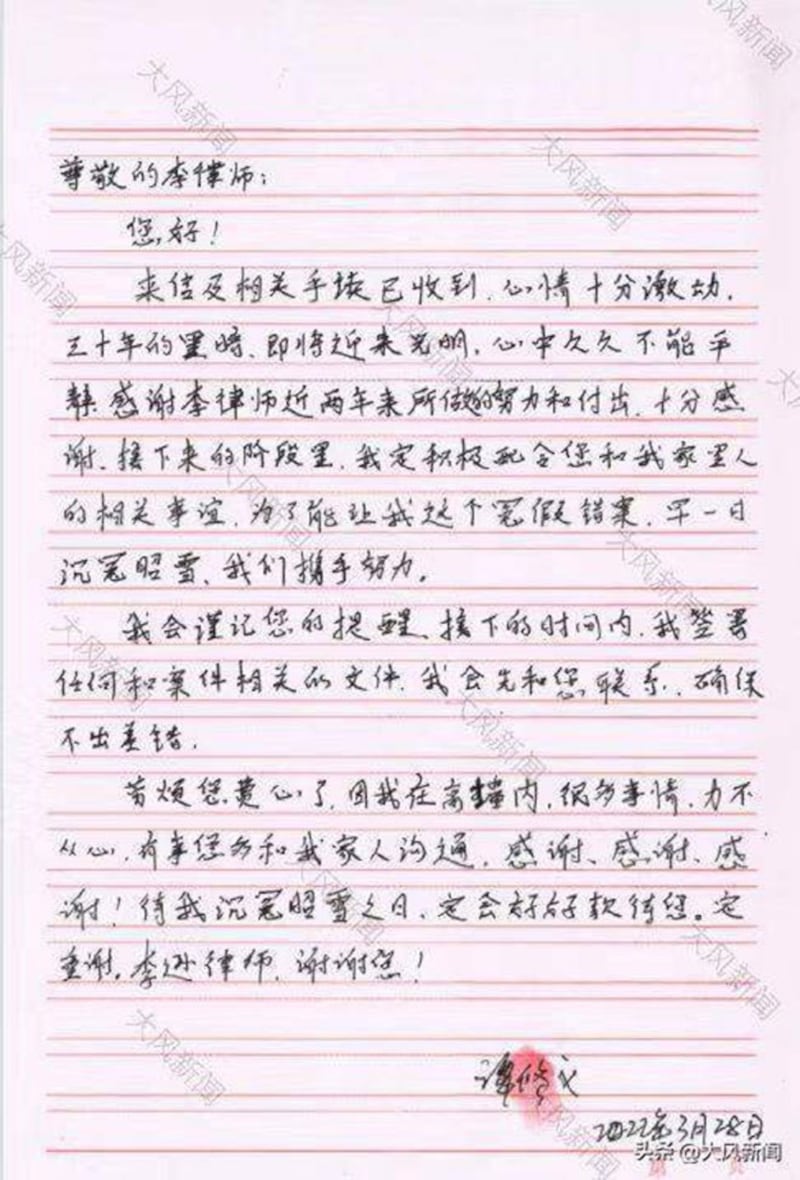 尊敬的李律师：
您好！
来信及相关手续已收到，心情十分激动，
三十年的黑暗、即将迎来光明，心中久久不能平
静，感谢李律师近两年来所做的努力和付出，十分感
谢、接下来的阶段里，我定积极配合您和我家里人
的相关事谊，为了能让我这个冤假错案，早一日
沉冤昭雪、我们携手努力。
我会谨记您的提醒、接下的时间内，我签署
任何和案件相关的文件，我会先和您联系，确保
不出差错，
劳烦您费心了，因我在高墙内，很多事情，力不
从心，有事您多和我家人沟通，感谢、感谢、感
谢！待我沉冤昭雪之日，定会好好款待您。定
重谢，李逊律师，谢谢您！
谭修义
2022年3月28日
头条@大风新闻
第 页
大风新闻
大风新闻
大风新闻
大风新闻
大风新闻
大风新闻
大风新闻
大风新闻
大风新闻
大风新闻
大风新闻
大风新闻